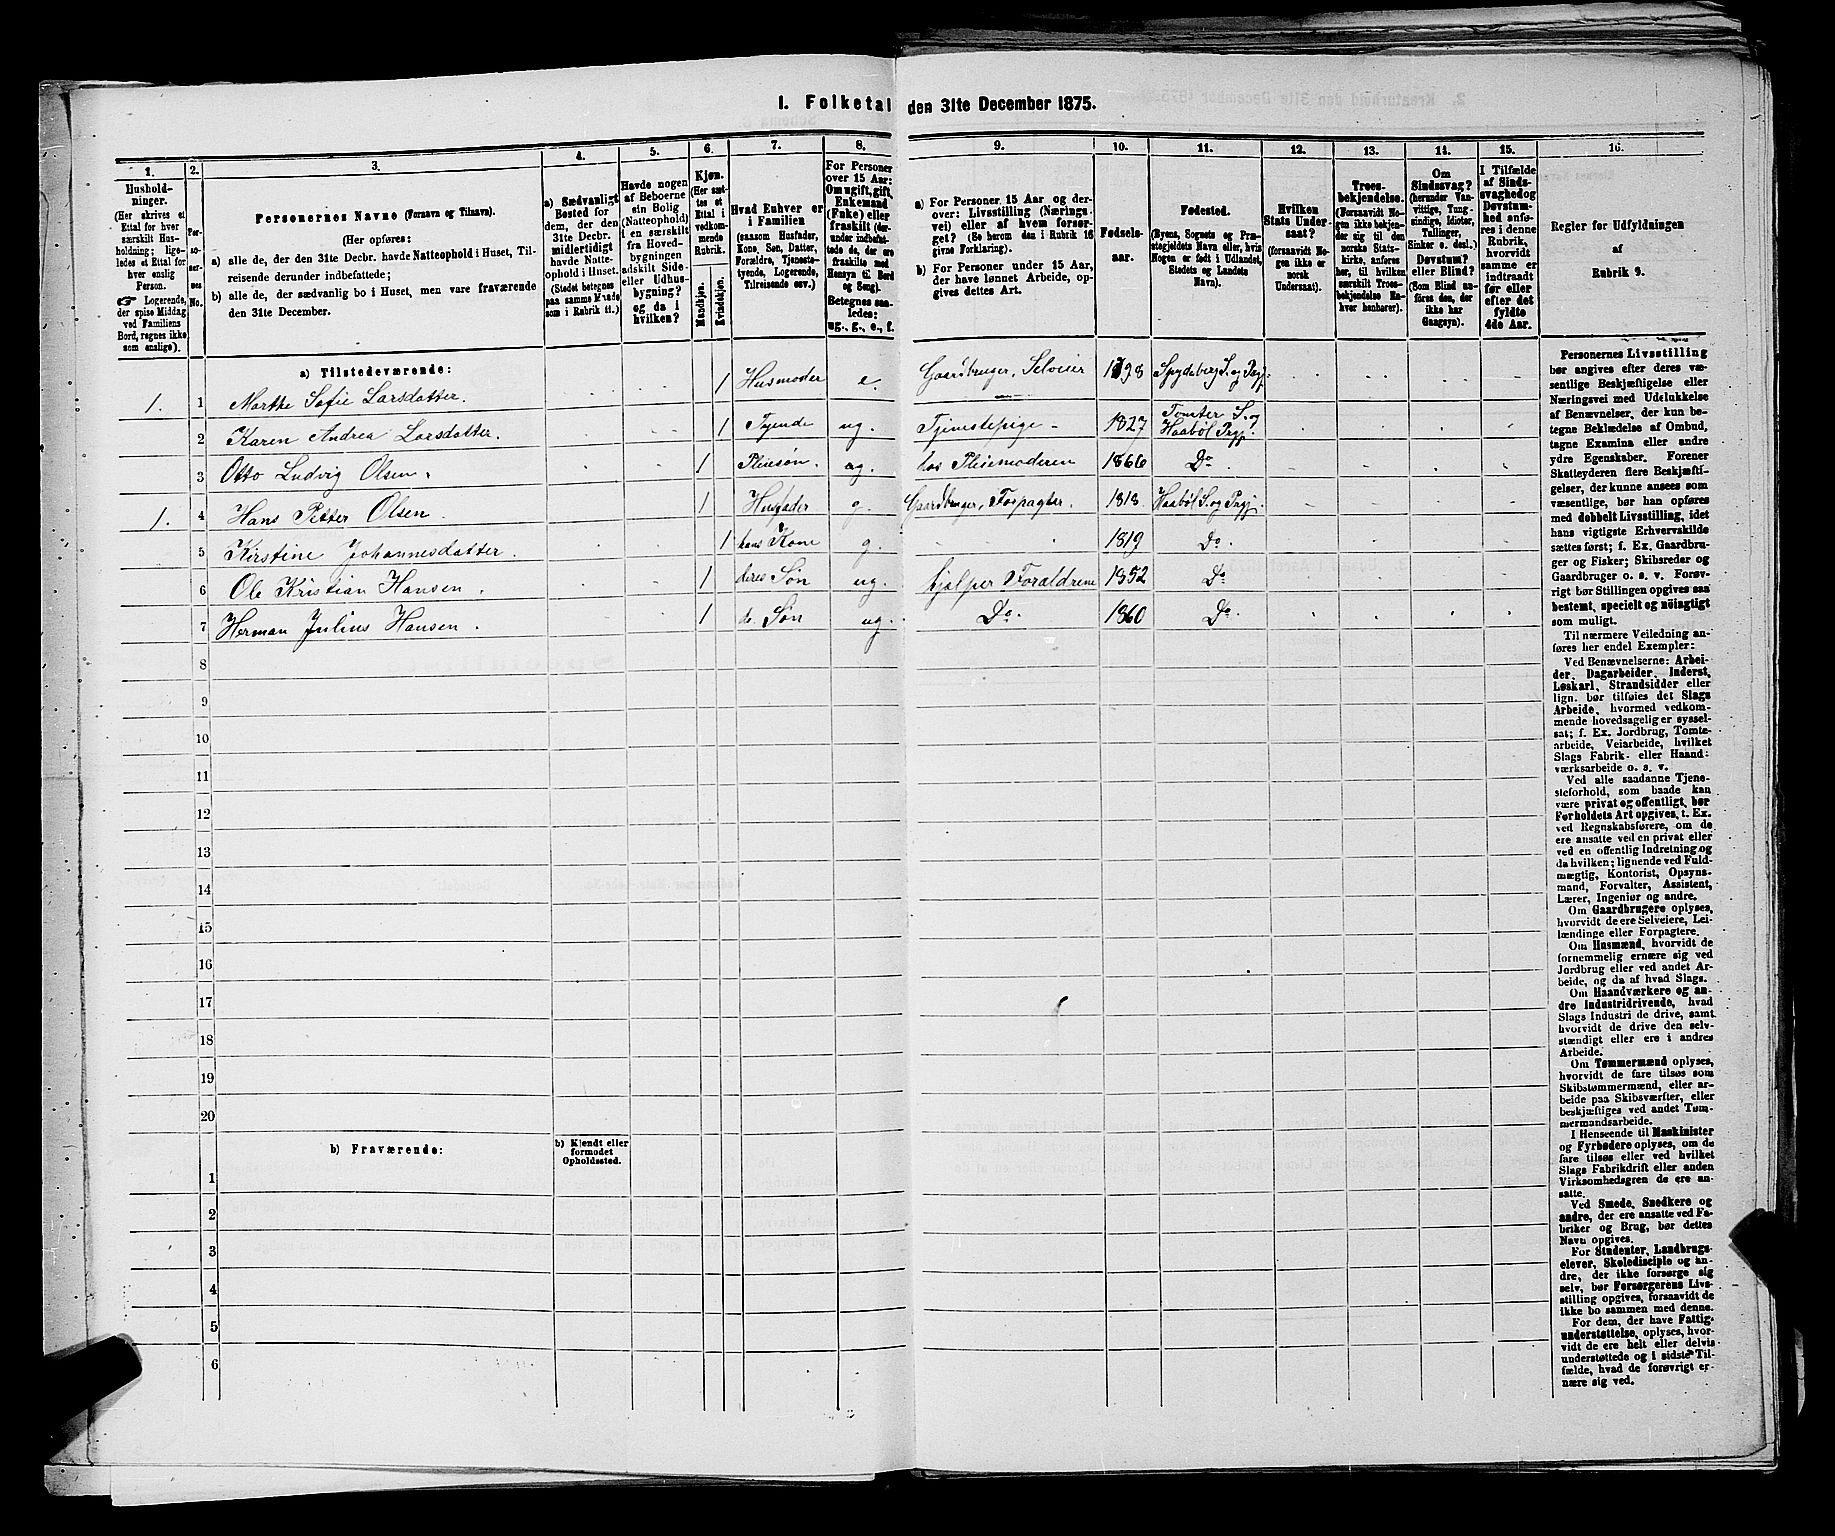 I. Folketal den 31te December 1875.
1.
Hushold-
ninger.
(Her skrives et
Ettal for hver
særskilt Hus-
holdning; lige-
ledes et Ettal for
hver enslig
Person.
☞ Logerende,
der spise Middag
ved Familiens
Bord, regnes ikke
som enslige).
2.
Per-
so-
ner-
nes
No.
3.
Personernes Navne (Fornavn og Tilnavn).
(Her opføres:
a) alle de, der den 31te Decbr. havde Natteophold i Huset, Til-
reisende derunder indbefattede;
b) alle de, der sædvanlig bo i Huset, men vare fraværende
den 31te December.
4.
a) Sædvanligt
Bosted for
dem, der den
31te Decbr.
midlertidigt
havde Natte-
ophold i Huset.
(Stedet betegnes
paa samme Maade
som i Rubrik 11.)
5.
Havde nogen
af Beboerne
sin Bolig
(Natteophold)
i en særskilt
fra Hoved-
bygningen
adskilt Side-
eller Udhus-
bygning?
og da i
hvilken?
6.
Kjøn.
(Her sæt-
tes et
Ettal i
vedkom-
mende
Rubrik.
Mandkjøn.
Kvindekjøn.
7.
Hvad Enhver er
i Familien
(saasom Husfader,
Kone, Søn, Datter,
Forældre, Tjeneste-
tyende, Logerende,
Tilreisende osv.)
8.
For Personer
over 15 Aar:
Om ugift, gift,
Enkemand
(Enke) eller
fraskilt (der-
under indbefat-
tede de, der ere
fraskilte med
Hensyn til Bord
og Seng).
Betegnes saa-
ledes:
ug., g., e., f.
9.
a) For Personer, 15 Aar og der-
over: Livsstilling (Nærings-
vei) eller af hvem forsør-
get? (Se herom den i Rubrik 16
givne Forklaring).
b) For Personer under 15 Aar,
der have lønnet Arbeide, op-
gives dettes Art.
10.
Fødsels-
aar.
11.
Fødested.
(Byens, Sognets og Præ-
stegjeldets Navn eller, hvis
Nogen er født i Udlandet,
Stedets og Landets
Navn).
12.
Hvilken
Stats Under-
saat?
(forsaavidt No-
gen ikke er
norsk
Undersaat).
13.
Troes-
bekjendelse.
(Forsaavidt No-
gen ikke bekjen-
der sig til den
norske Stats-
kirke, anføres
her, til hvilken
særskilt Troes-
bekjendelse En-
hver henhører).
14.
Om
Sindssvag?
(herunder Van-
vittige, Tung-
sindige, Idioter,
Tullinger,
Sinker o. desl.)
Døvstum?
eller Blind?
(Som Blind an-
føres den, der
ikke har
Gangsyn).
15.
I Tilfælde
af Sinds-
svaghed og
Døvstum-
hed anfø-
res i denne
Rubrik,
hvorvidt
samme er
indtraadt
før eller
efter det
fyldte
4de Aar.
16.
Regler for Udfyldningen
af
Rubrik 9.
a) Tilstedeværende:
1. 1 Marthe Sofie Larsdatter. 1 Husmoder e Gaardbruger, Selveier 1798 Spydeberg S. og Prgj.
2 Karen Andrea Larsdatter. 1 Tyende ug. Tjenestepige 1827 Tomter S. og
Haabøl Prgj.
3 Otto Ludvig Olsen. 1 Pliesøn. ug. hos Pliemoderen 1866 Do.
1. 4 Hans Petter Olsen. 1 Husfader g. Gaardbruger, Forpagter. 1818 Haabøl S. og Prgj.
5 Kirstine Johannesdatter. 1 hans Kone g. 1819 Do.
6 Ole Kristian Hansen. 1 deres Søn ug. hjælper Forældrene 1852 Do.
7 Herman Julius Hansen. 1 do. Søn ug. Do. 1860 Do.
8
9
10
11
12
13
14
15
16
17
18
19
20
b) Fraværende:
b) Kjendt eller
formodet
Opholdssted.
1
2
3
4
5
6
Personernes Livsstilling
bør angives efter deres væ-
sentlige Beskjæftigelse eller
Næringsvei med Udelukkelse
af Benævnelser, der kun be-
tegne Beklædelse af Ombud,
tagne Examina eller andre
ydre Egenskaber. Forener
Skatteyderen flere Beskjæfti-
gelser, der kunne ansees som
væsentlige, bør han opføres
med dobbelt Livsstilling, idet
hans vigtigste Erhvervskilde
sættes først; f. Ex. Gaardbru-
ger og Fisker; Skibsreder og
Gaardbruger o. s. v. Forøv-
rigt bør Stillingen opgives saa
bestemt, specielt og nöiagtigt
som muligt.
Til nærmere Veiledning an-
føres her endel Exempler:
Ved Benævnelserne: Arbei-
der, Dagarbeider, Inderst,
Løskarl, Strandsidder eller
lign. bør tilføies det Slags
Arbeide, hvormed vedkom-
mende hovedsagelig er syssel-
sat; f. Ex. Jordbrug, Tomte-
arbeide, Veiarbeide, hvilket
Slags Fabrik- eller Haand-
værksarbeide o. s. v.
Ved alle saadanne Tjene-
steforhold, som baade kan
være privat og offentligt, bør
Forholdets Art opgives, t. Ex.
ved Regnskabsførere, om de
ere ansatte ved en privat eller
ved en offentlig Indretning og
da hvilken; lignende ved Fuld-
mægtig, Kontorist, Opsyns-
mand, Forvalter, Assistent,
Lærer, Ingeniør og andre.
Om Gaardbrugere oplyses,
hvorvidt de ere Selveiere, Lei-
lændinge eller Forpagtere.
Om Husmænd, hvorvidt de
fornemmelig ernære sig ved
Jordbrug eller ved andet Ar-
beide, og da af hvad Slags.
Om Haandværkere og an-
dre Industridrivende, hvad
Slags Industri de drive, samt
hvorvidt de drive den selv-
stændigt eller ere i andres
Arbeide.
Om Tømmermænd oplyses,
hvorvidt de fare tilsøs som
Skibstømmermænd, eller ar-
beide paa Skibsværfter, eller
beskjæftiges ved andet Tøm-
mermandsarbeide.
I Henseende til Maskinister
og Fyrbødere oplyses, om de
fare tilsøs eller ved hvilket
Slags Fabrikdrift eller anden
Virksomhedsgren de ere an-
satte.
Ved Smede, Snedkere og
andre, der ere ansatte ved Fa-
briker og Brug, bør dettes
Navn opgives.
For Studenter, Landbrugs-
elever, Skoledisciple og an-
dre, der ikke forsørge sig
selv, bør Forsørgerens Livs-
stilling opgives, forsaavidt de
ikke bo sammen med denne.
For dem, der have Fattig-
understøttelse, oplyses, hvor-
vidt de ere helt eller delvis
understøttede og i sidste Til-
fælde, hvad de forøvrigt er-
nære sig ved.